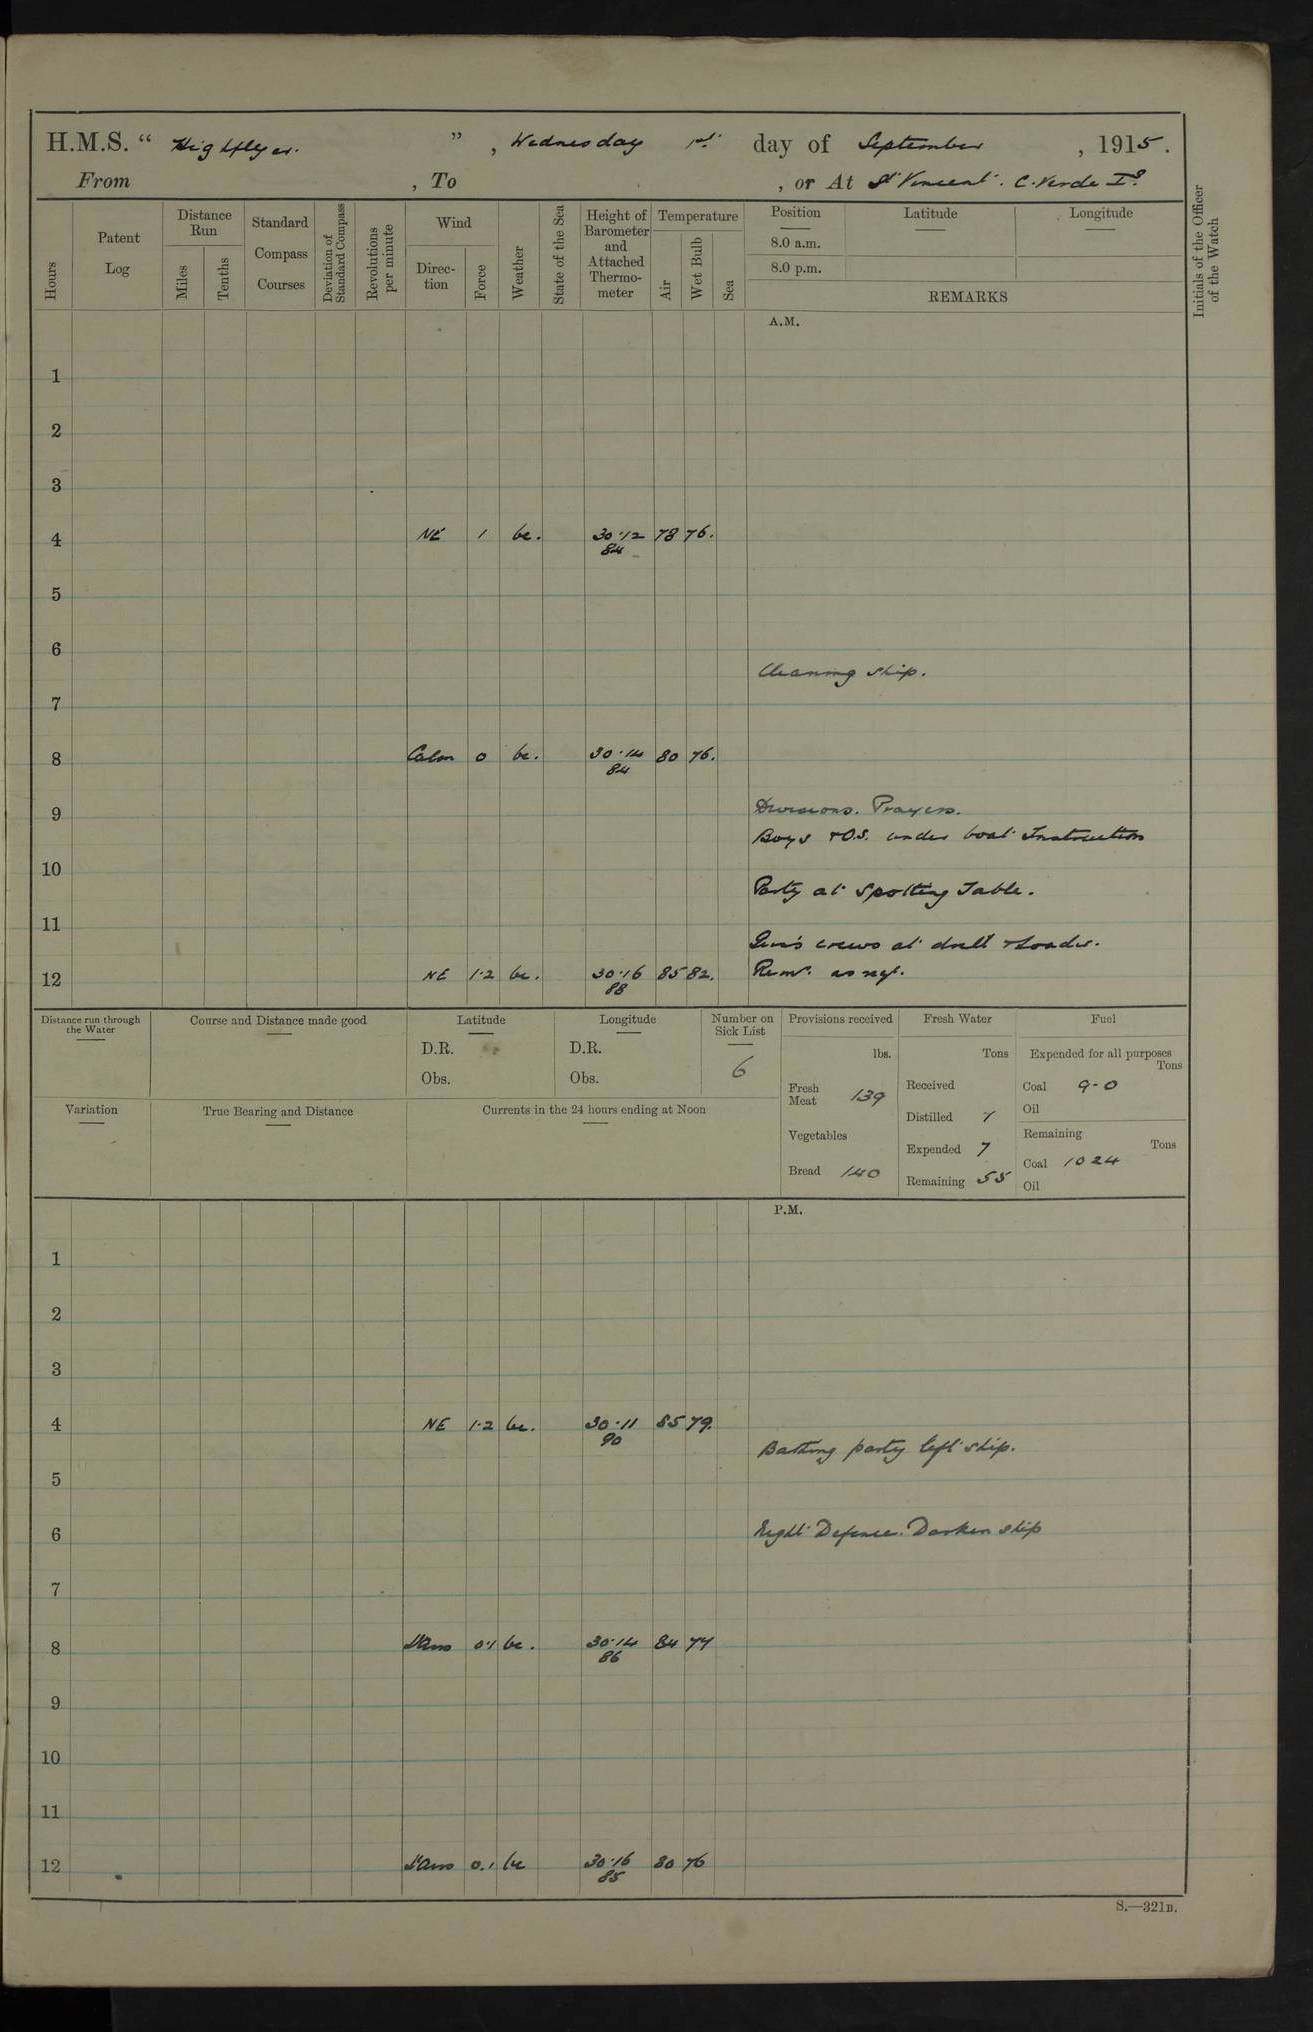 H.M.S. " Highflyer. ", Wednesday 1st day of September, 1915.
From , To , or At St Vincent. C. Verde Is.
Hours
Patent Log
Distance Run
Miles
Tenths
Standard Compass Courses
Deviation of Standard Compass
Revolutions per minute
Wind
Direction
Force
Weather
State of the Sea
Height of Barometer and Attached Thermometer
Temperature
Air
Wet Bulb
Sea
Position
Latitude
Longitude
8.0 a.m.
8.0 p.m.
REMARKS
Initials of the Officer of the Watch
A.M.
1
2
3
4 NE 1 bc. 30.12 78 76.
84
5
6
Cleaning ship.
7
8 Calm 0 bc. 30.14 80 76.
84
9 Divisions. Prayers.
Boys & O.S. under boat Instruction
10
Party at Spotting Table.
11
Gun's crews at drill & Loader.
12 NE 1.2 bc. 30.16 85 82. Remr. as req.
88
Distance run through the Water
Course and Distance made good
Latitude
D.R.
Obs.
Longitude
D.R.
Obs.
Number on Sick List
6
Provisions received
lbs.
Fresh Meat 139
Vegetables
Bread 140
Fresh Water
Tons
Received
Distilled 7
Expended 7
Remaining 55
Fuel
Expended for all purposes
Tons
Coal 9-0
Oil
Remaining
Tons
Coal 1024
Oil
Variation
True Bearing and Distance
Currents in the 24 hours ending at Noon
P.M.
1
2
3
4 NE 1.2 bc. 30.11 85 79.
90
Bathing party left ship.
5
6 Night Defence. Darken ship
7
8 0.1 bc. 30.14 84 77
86
9
10
11
12 0.1 bc 30.16 80 76
85
S.—321B.